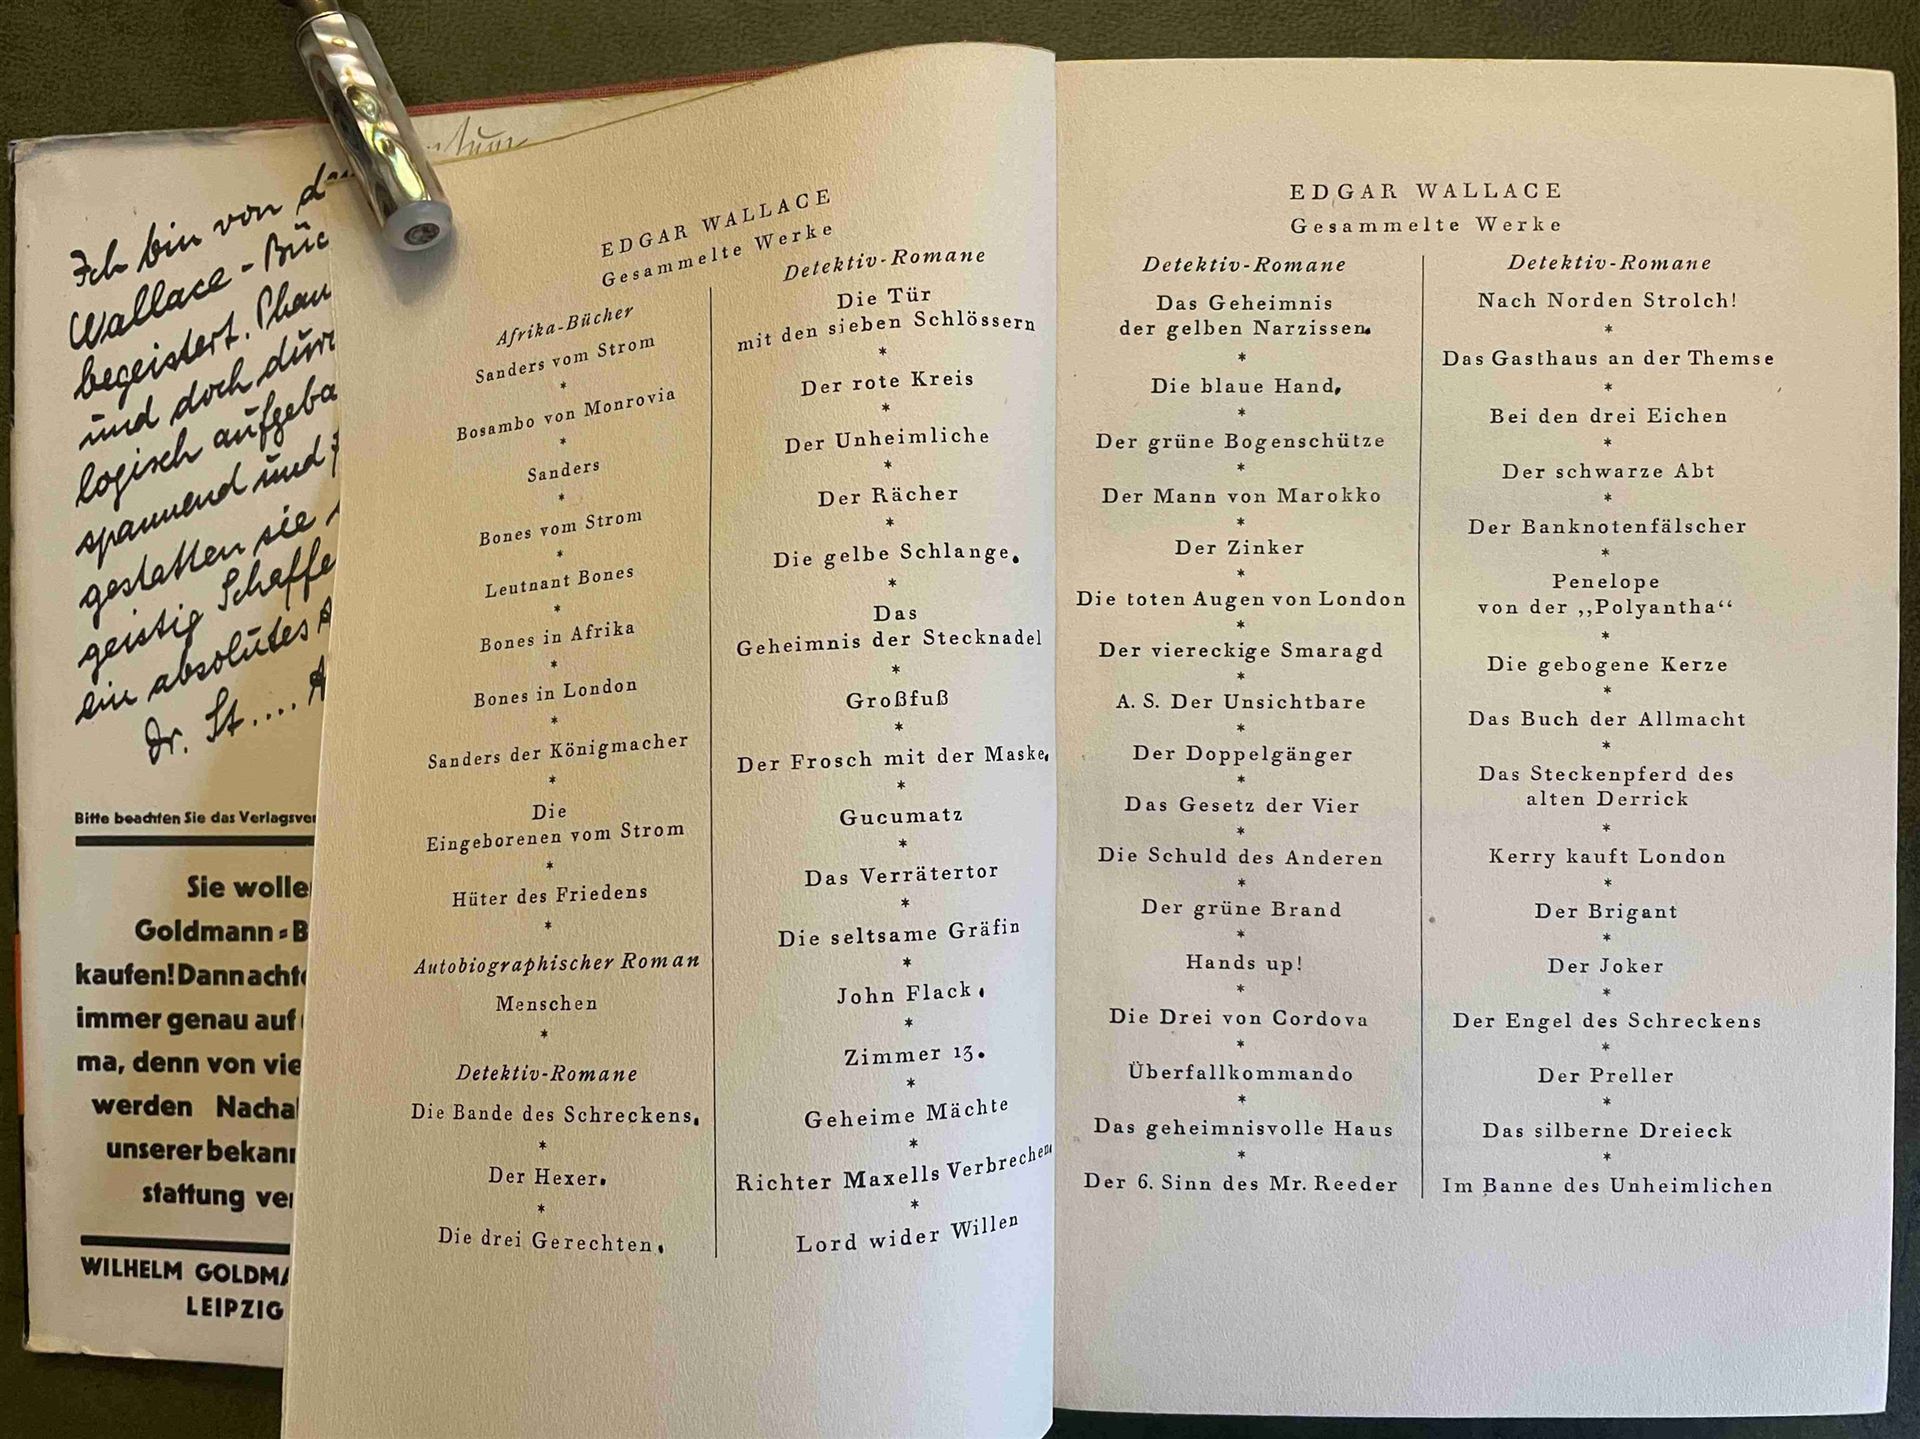 Ich bin von
Wallace-
begeistert.
und doch
logisch
spannend und
gestatten sie
geistig
ein absolutes
Dr. St....
Bitte beachten Sie das
Sie
Goldmann=
kaufen! Dann
immer genau auf
denn von
werden
unserer
WILHELM
LEIPZIG
EDGAR WALLACE
Gesammelte Werke
Afrika-Bücher
Sanders vom Strom
*
Bosambo von Monrovia
*
Sanders
*
Bones vom Strom
*
Leutnant Bones
*
Bones in Afrika
*
Bones in London
*
Sanders der Königmacher
*
Die
Eingeborenen vom Strom
*
Hüter des Friedens
*
Autobiographischer Roman
Menschen
*
Detektiv-Romane
Die Bande des Schreckens.
*
Der Hexer.
*
Die drei Gerechten.
Detektiv-Romane
Die Tür
mit den sieben Schlössern
*
Der rote Kreis
*
Der Unheimliche
*
Der Rächer
*
Die gelbe Schlange.
*
Das
Geheimnis der Stecknadel
*
Großfuß
*
Der Frosch mit der Maske.
*
Gucumatz
*
Das Verrätertor
*
Die seltsame Gräfin
*
John Flack.
*
Zimmer 13.
*
Geheime Mächte
*
Richter Maxells Verbrechen
*
Lord wider Willen
EDGAR WALLACE
Gesammelte Werke
Detektiv-Romane
Das Geheimnis
der gelben Narzissen.
*
Die blaue Hand.
*
Der grüne Bogenschütze
*
Der Mann von Marokko
*
Der Zinker
*
Die toten Augen von London
*
Der viereckige Smaragd
*
A. S. Der Unsichtbare
*
Der Doppelgänger
*
Das Gesetz der Vier
*
Die Schuld des Anderen
*
Der grüne Brand
*
Hands up!
*
Die Drei von Cordova
*
Überfallkommando
*
Das geheimnisvolle Haus
*
Der 6. Sinn des Mr. Reeder
Detektiv-Romane
Nach Norden Strolch!
*
Das Gasthaus an der Themse
*
Bei den drei Eichen
*
Der schwarze Abt
*
Der Banknotenfälscher
*
Penelope
von der „Polyantha“
*
Die gebogene Kerze
*
Das Buch der Allmacht
*
Das Steckenpferd des
alten Derrick
*
Kerry kauft London
*
Der Brigant
*
Der Joker
*
Der Engel des Schreckens
*
Der Preller
*
Das silberne Dreieck
*
Im Banne des Unheimlichen